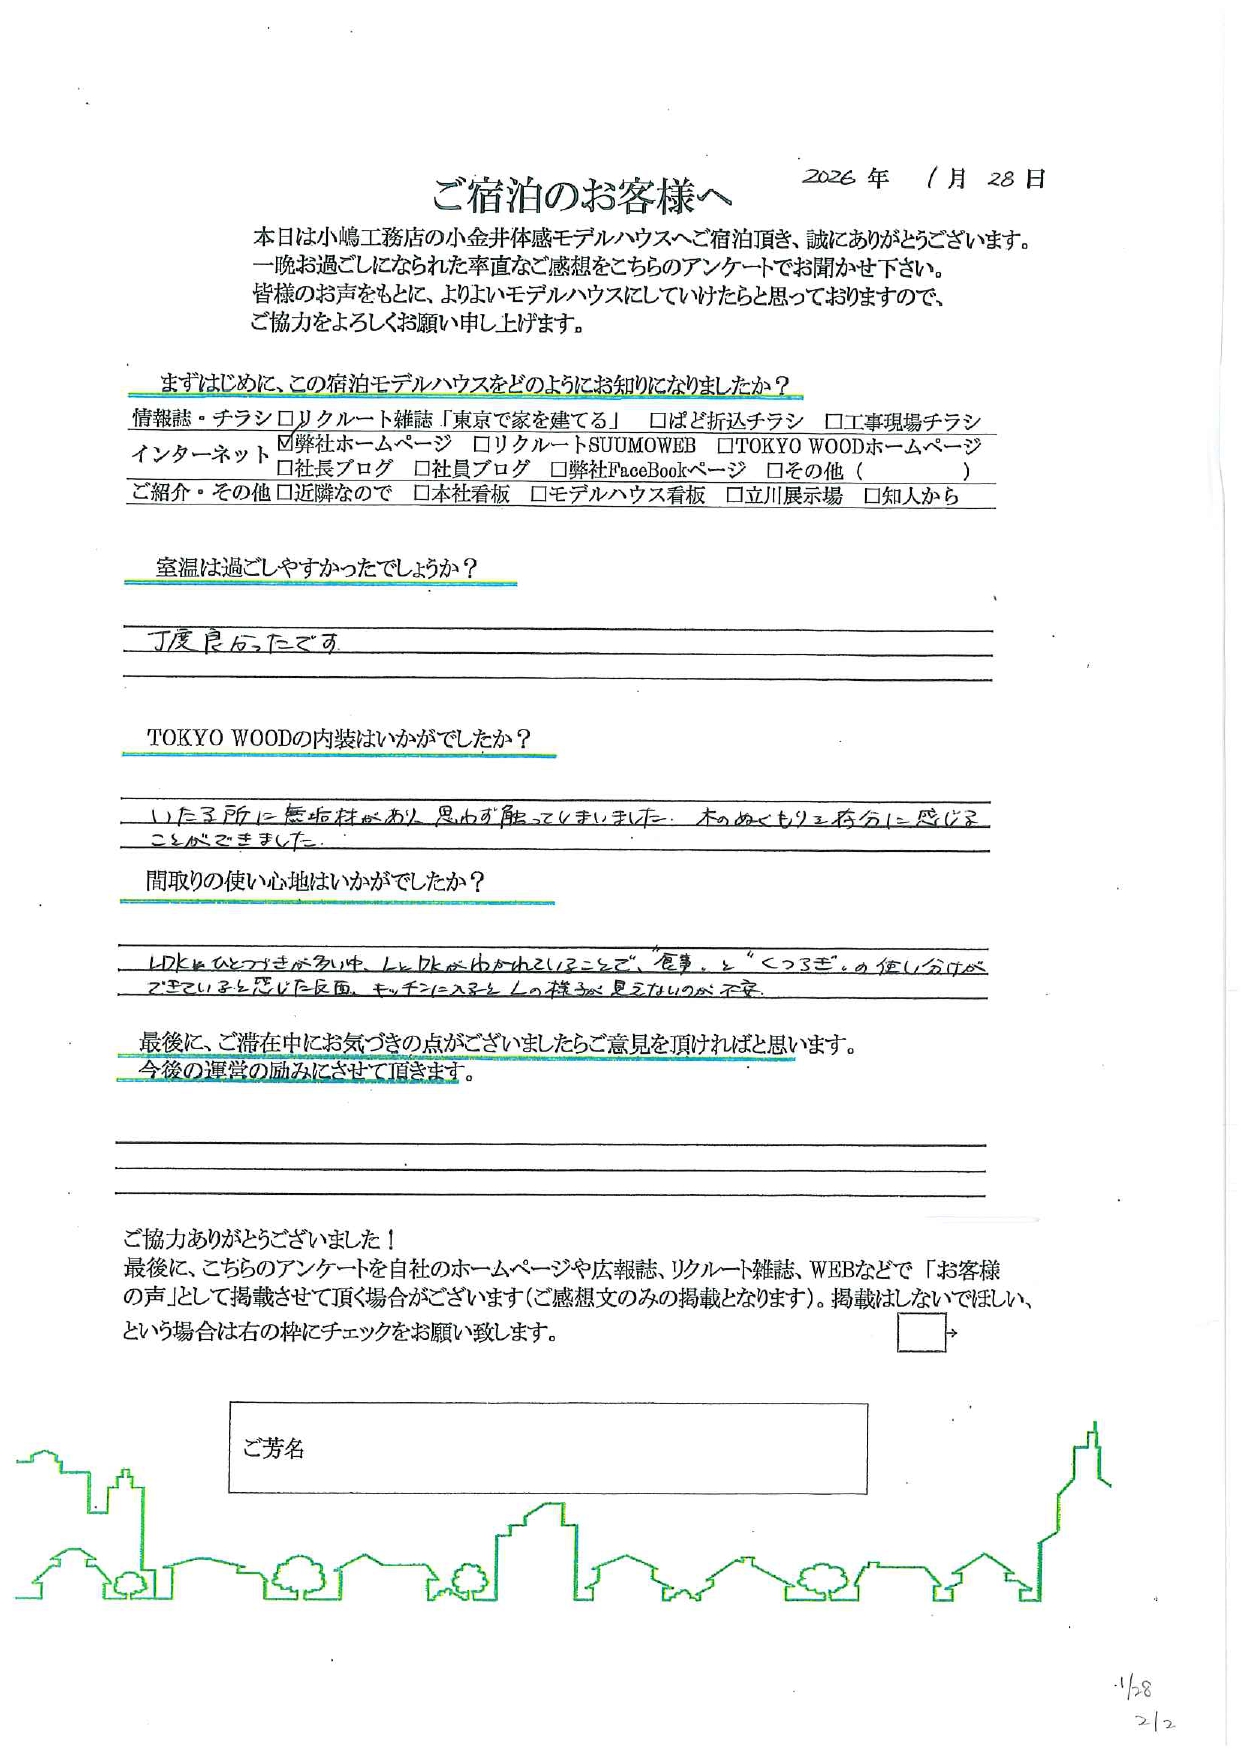 2026 年 1月 28 日
ご宿泊のお客様へ
本日は小嶋工務店の小金井体感モデルハウスへご宿泊頂き、誠にありがとうございます。
一晩お過ごしになられた率直なご感想をこちらのアンケートでお聞かせ下さい。
皆様のお声をもとに、よりよいモデルハウスにしていけたらと思っておりますので、
ご協力をよろしくお願い申し上げます。
まずはじめに、この宿泊モデルハウスをどのようにお知りになりましたか？
情報誌・チラシ □リクルート雑誌「東京で家を建てる」 □ぱど折込チラシ □工事現場チラシ
インターネット ☑弊社ホームページ □リクルートSUUMOWEB □TOKYO WOODホームページ
□社長ブログ □社員ブログ □弊社FaceBookページ □その他（ ）
ご紹介・その他 □近隣なので □本社看板 □モデルハウス看板 □立川展示場 □知人から
室温は過ごしやすかったでしょうか？
丁度良かったです
TOKYO WOODの内装はいかがでしたか？
いたる所に無垢材があり、思わず触ってしまいました。木のぬくもりを存分に感じる
ことができました。
間取りの使い心地はいかがでしたか？
LDKはひとつづきが多い中、LとDKがわかれていることで、"食事"と"くつろぎ"の使い分けが
できていると感じた反面、キッチンに入るとLの様子が見えないのが不安.
最後に、ご滞在中にお気づきの点がございましたらご意見を頂ければと思います。
今後の運営の励みにさせて頂きます。
ご協力ありがとうございました！
最後に、こちらのアンケートを自社のホームページや広報誌、リクルート雑誌、WEBなどで「お客様
の声」として掲載させて頂く場合がございます（ご感想文のみの掲載となります）。掲載はしないでほしい、
という場合は右の枠にチェックをお願い致します。 □→
ご芳名
1/28
2/2